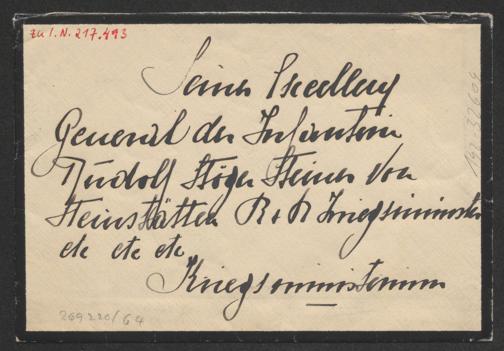 zu I.N. 217.493
Seiner Excellenz
General der Infanterie
Rudolf Stöger Steiner von
Steinstätten K u K Kriegsminister
etc etc etc
Kriegsministerium
269.220/64